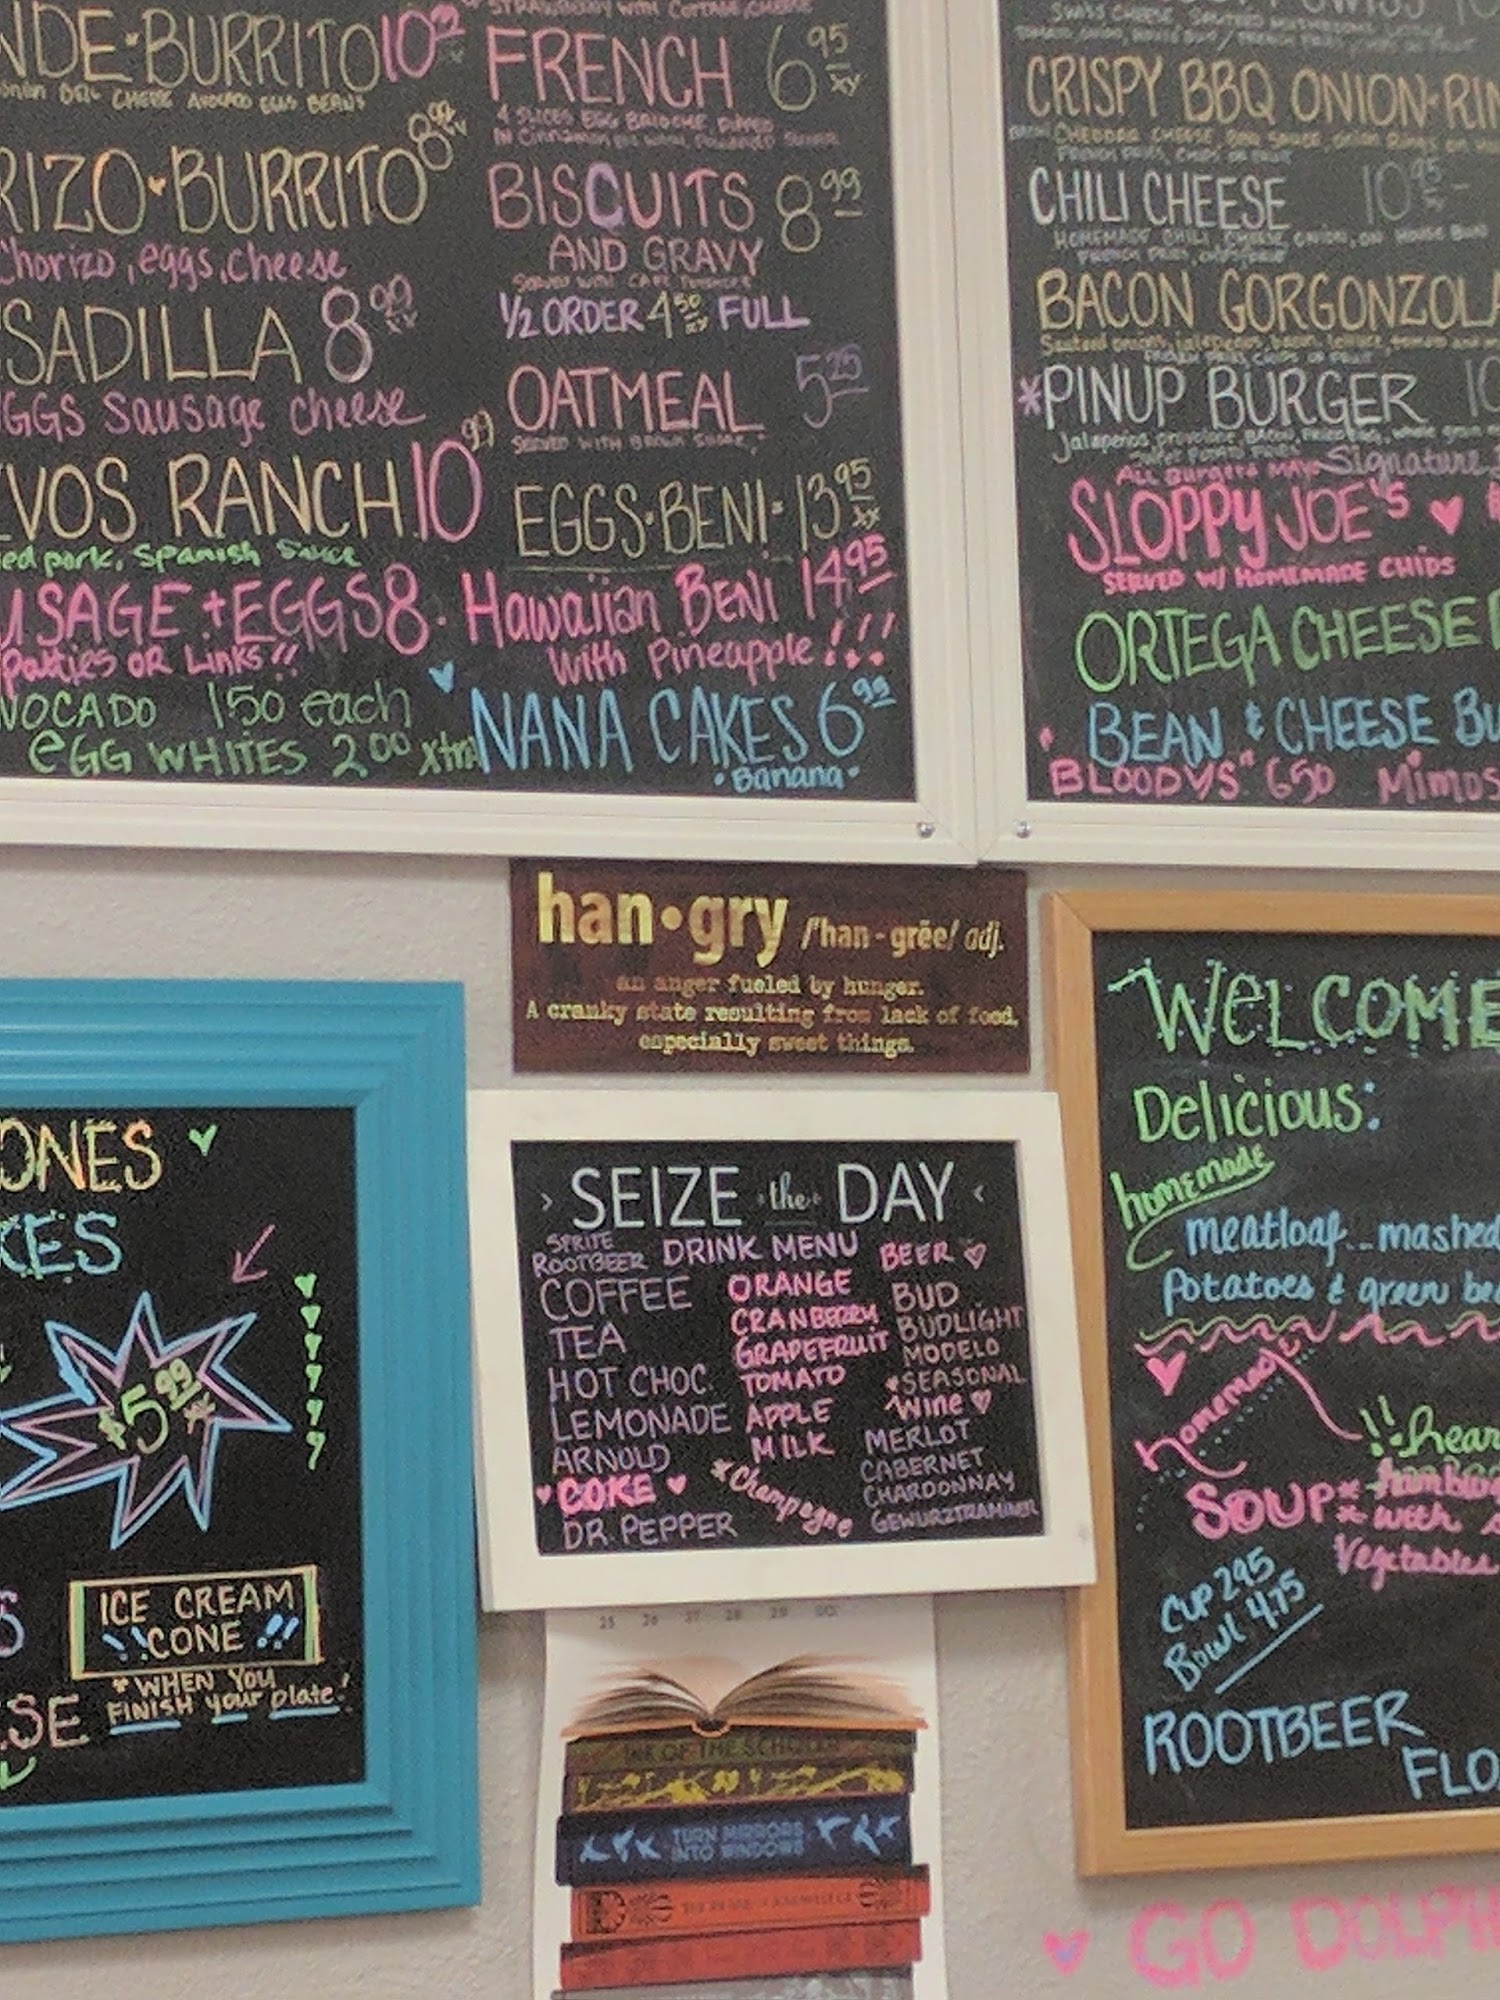 NDE·BURRITO 10
CHEESE AVOCADO EGGS BEANS
RIZO·BURRITO 8
Chorizo, eggs, cheese
SADILLA 8 99
GGS Sausage cheese
VOS RANCH 10 99
ed pork, Spanish Sauce
USAGE + EGGS 8.
patties OR Links!!
VOCADO 150 each
EGG WHITES 2 00 xtra
STRAWBERRY WITH COTTAGE CHEESE
FRENCH 6 95
4 SLICES EGG BRIOCHE DIPPED
BISCUITS 8 99
AND GRAVY
1/2 ORDER 4 50 FULL
OATMEAL 5 25
SERVED WITH BROWN SUGAR
EGGS·BENI· 13 95
Hawaiian BENI 14 95
With Pineapple!!!
NANA CAKES 6 99
·Banana·
SWISS CHEESE, SAUTEED MUSHROOMS,
CRISPY BBQ ONION·RIN
CHEDDAR CHEESE, BBQ SAUCE, ONION RINGS ON
FRENCH FRIES, CHIPS OR FRUIT
CHILI CHEESE 10 95
HOMEMADE CHILI, CHEESE, ONION, ON HOUSE BUN
FRENCH FRIES, CHIPS, FRUIT
BACON GORGONZOLA
Sauteed onions, jalapenos, bacon, lettuce, tomato and
FRENCH FRIES, CHIPS OR FRUIT
*PINUP BURGER 10
Jalapeños, provolone, BACON, FRIED EGG, whole grain
SWEET POTATO FRIES
ALL Burgers MAYO Signature
SLOPPY JOE'S
SERVED W/ HOMEMADE CHIPS
ORTEGA CHEESE
BEAN & CHEESE BU
BLOODYS" 650 Mimos
han•gry /'han-grēe/ adj.
an anger fueled by hunger.
A cranky state resulting from lack of food,
especially sweet things.
ONES
KES
$5 99
S
ICE CREAM
CONE !!
*WHEN YOU
FINISH your plate!
SE
SEIZE the DAY
DRINK MENU
SPRITE
ROOTBEER
COFFEE
TEA
HOT CHOC.
LEMONADE
ARNOLD
COKE
DR. PEPPER
ORANGE
CRANBERRY
GRAPEFRUIT
TOMATO
APPLE
MILK
*Champagne
BEER
BUD
BUDLIGHT
MODELO
*SEASONAL
Wine
MERLOT
CABERNET
CHARDONNAY
GEWURZTRAMINER
WELCOME
Delicious:
homemade
meatloaf...mashed
Potatoes & green be
homemade
!! hear
SOUP* hambur
* with
Vegetables
CUP 295
Bowl 4.75
ROOTBEER
FLO
25 26 27 28 29 30
INK OF THE SCHOLAR
TURN MIRRORS
INTO WINDOWS
GO DOLPH